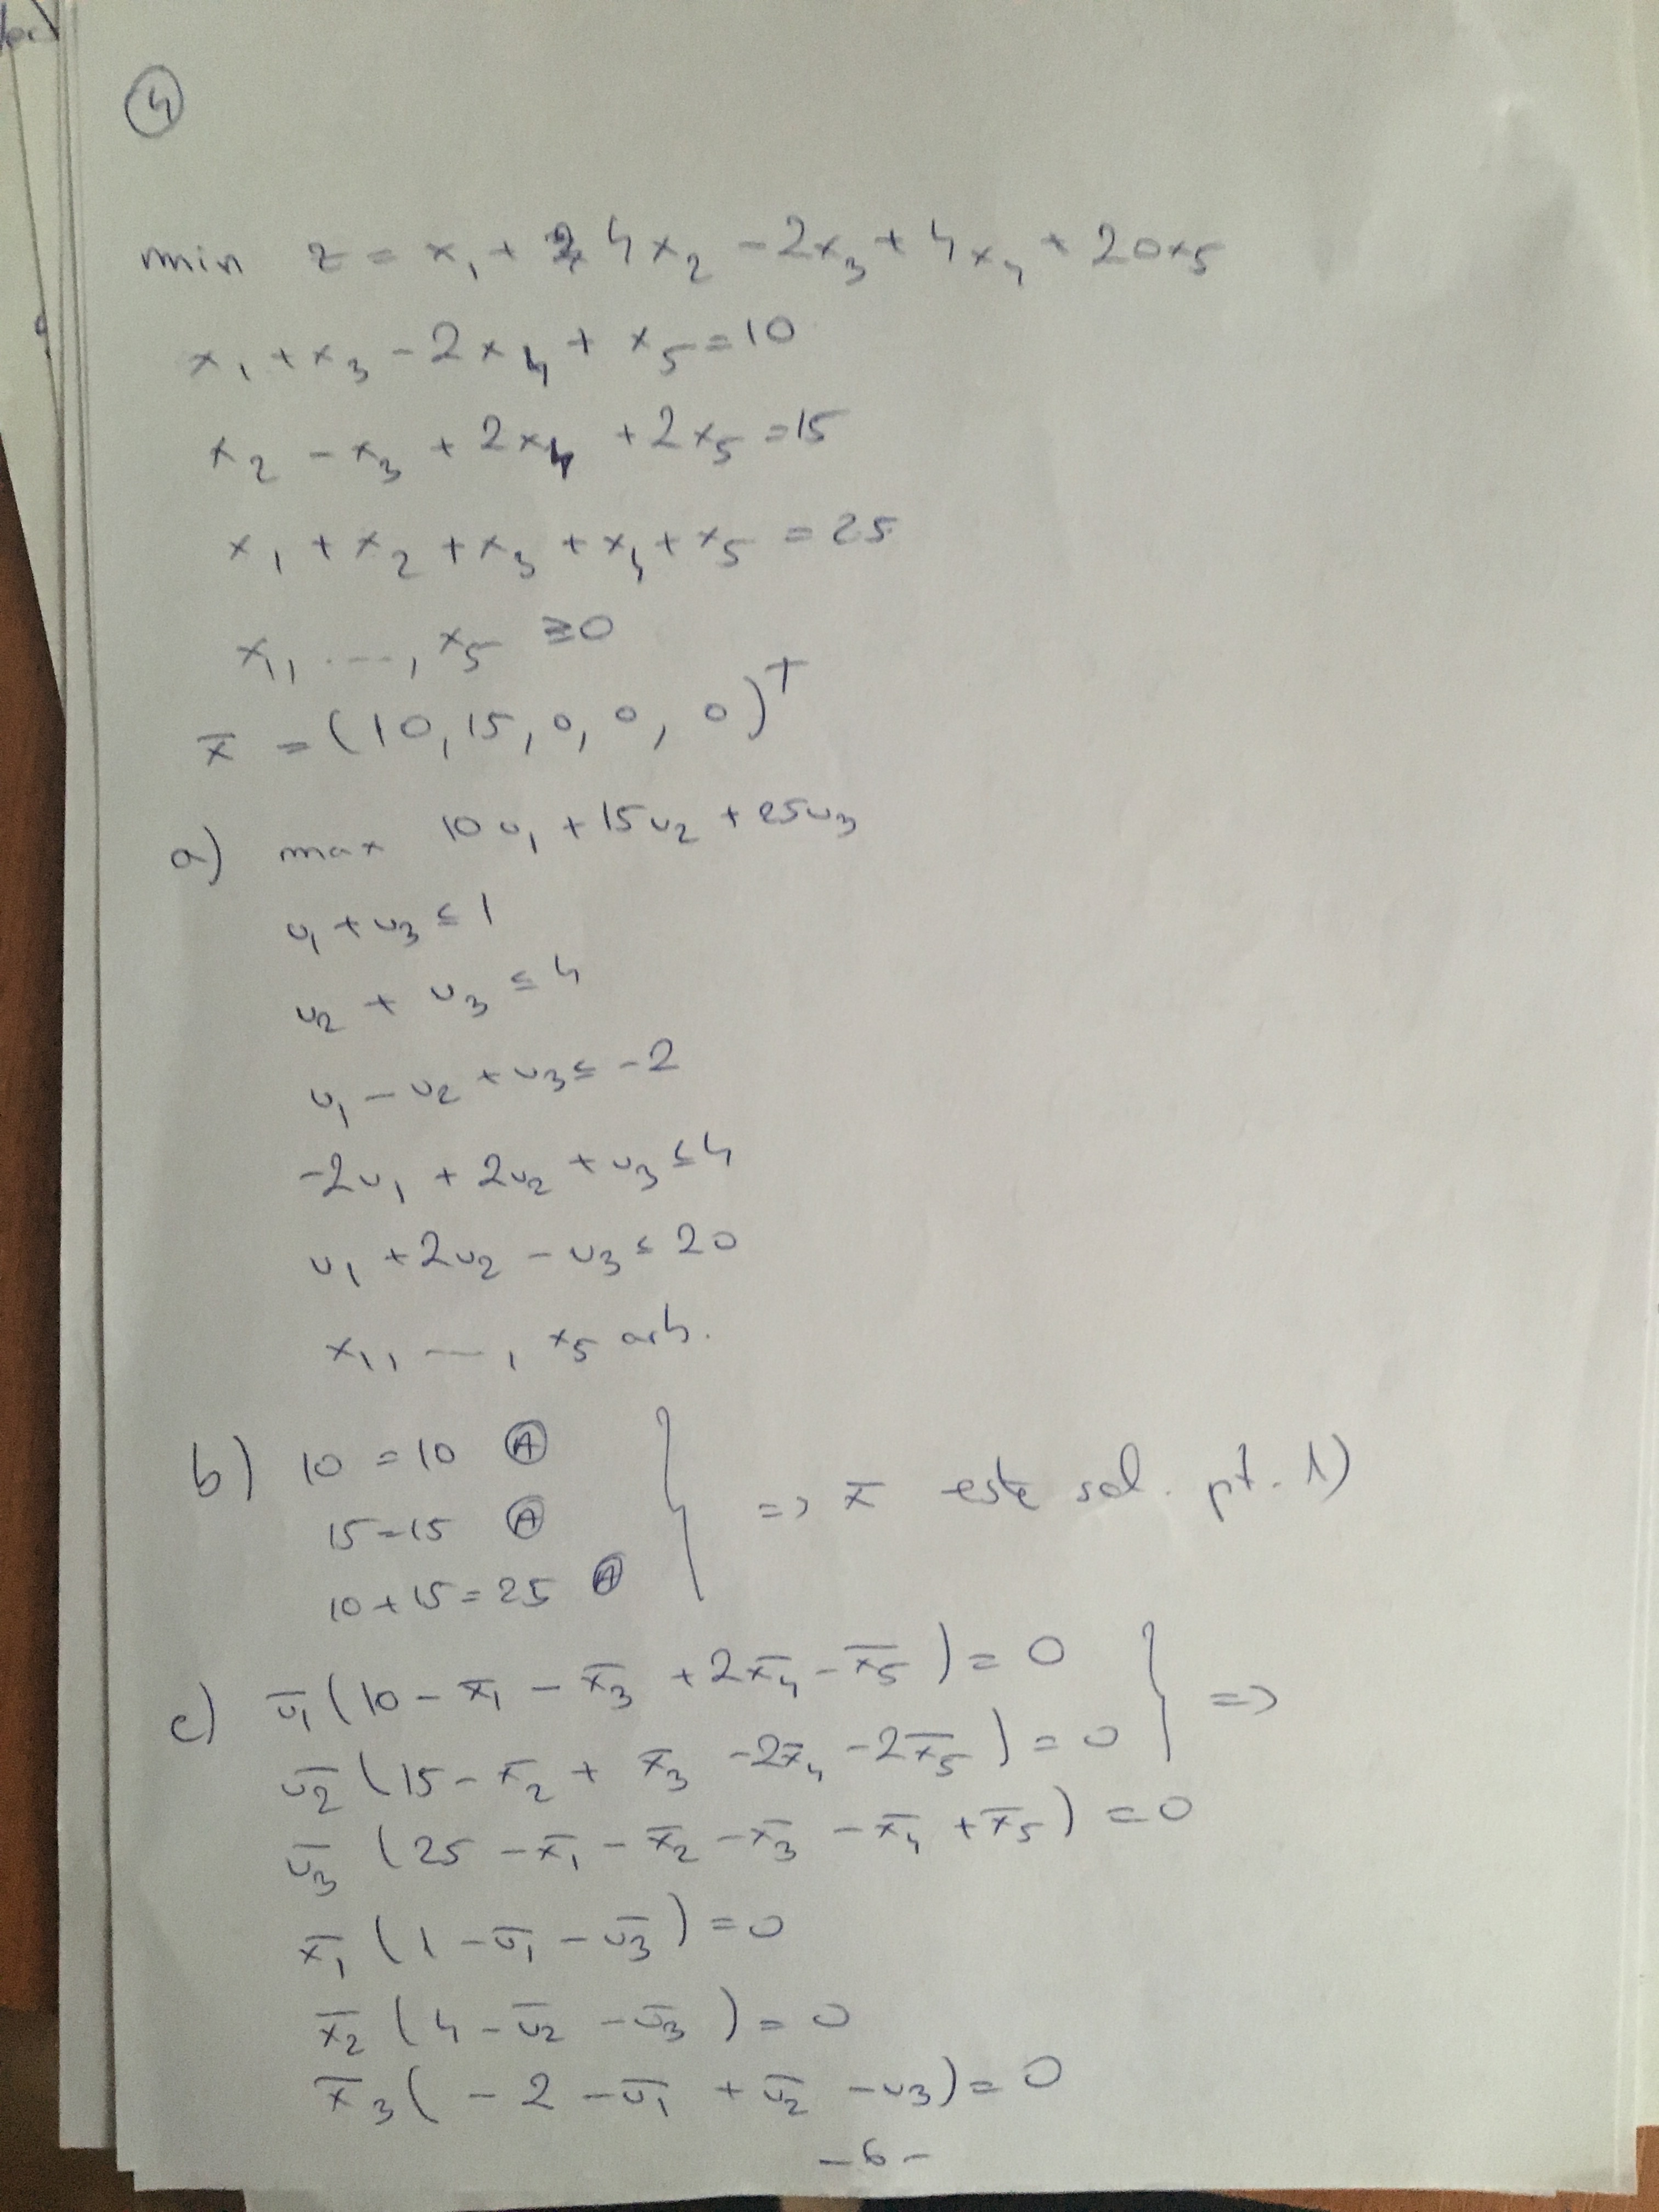 4
min z = x₁ + 4x₂ - 2x₃ + 4x₄ + 20x₅
x₁ + x₃ - 2x₄ + x₅ = 10
x₂ - x₃ + 2x₄ + 2x₅ = 15
x₁ + x₂ + x₃ + x₄ + x₅ = 25
x₁, ..., x₅ ≥ 0
x̄ = (10, 15, 0, 0, 0)ᵀ
a) max 10u₁ + 15u₂ + 25u₃
u₁ + u₃ ≤ 1
u₂ + u₃ ≤ 4
u₁ - u₂ + u₃ ≤ -2
-2u₁ + 2u₂ + u₃ ≤ 4
u₁ + 2u₂ - u₃ ≤ 20
x₁, ..., x₅ arb.
b) 10 = 10 A
15 = 15 A
10 + 15 = 25 A
=> x̄ este sol. pt. 1)
c) ū₁(10 - x̄₁ - x̄₃ + 2x̄₄ - x̄₅) = 0 =>
ū₂(15 - x̄₂ + x̄₃ - 2x̄₄ - 2x̄₅) = 0
ū₃(25 - x̄₁ - x̄₂ - x̄₃ - x̄₄ + x̄₅) = 0
x̄₁(1 - ū₁ - ū₃) = 0
x̄₂(4 - ū₂ - ū₃) = 0
x̄₃(-2 - ū₁ + ū₂ - u₃) = 0
- 6 -